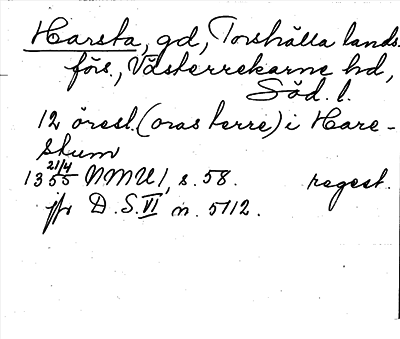 Harsta, gd, Torshälla lands-
förs., Västerrekarne hd,
Söd. l.
12 öresl. (oras terre) i Hare-
stum
13 21/4 55 NMU 1, s. 58. regest.
jfr D.S. VI n. 5112.